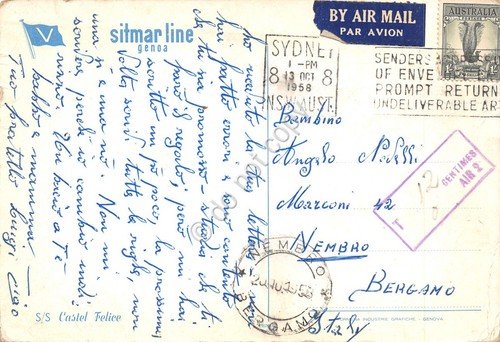 sitmar line
genoa
BY AIR MAIL
PAR AVION
AUSTRALIA
SYDNEY
1 - PM
8 13 OCT 8
1958
N.S.W. AUST.
SENDERS A
OF ENVE
PROMPT RETURN
UNDELIVERABLE AR
ho ricevuto la tua lettera, non
hai fatto errori e sono contento
che ti ha promosso - studia che ti
farò il regalo, però mi hai
scritto un pò poco, la prossima
volta scrivi tutte le righe, non
una si e una nò. Non mi
scrivere perchè io cambio nave.
Un bacio a Te
pabbo e mamma -
Tuo fratello Luigi, ciao
Bambino
Angelo
Marconi 42
NEMBRO
BERGAMO
Italy
T
12
CENTIMES
AIR 2
NEMBRO
BERGAMO
S/S Castel Felice
INDUSTRIE GRAFICHE - GENOVA